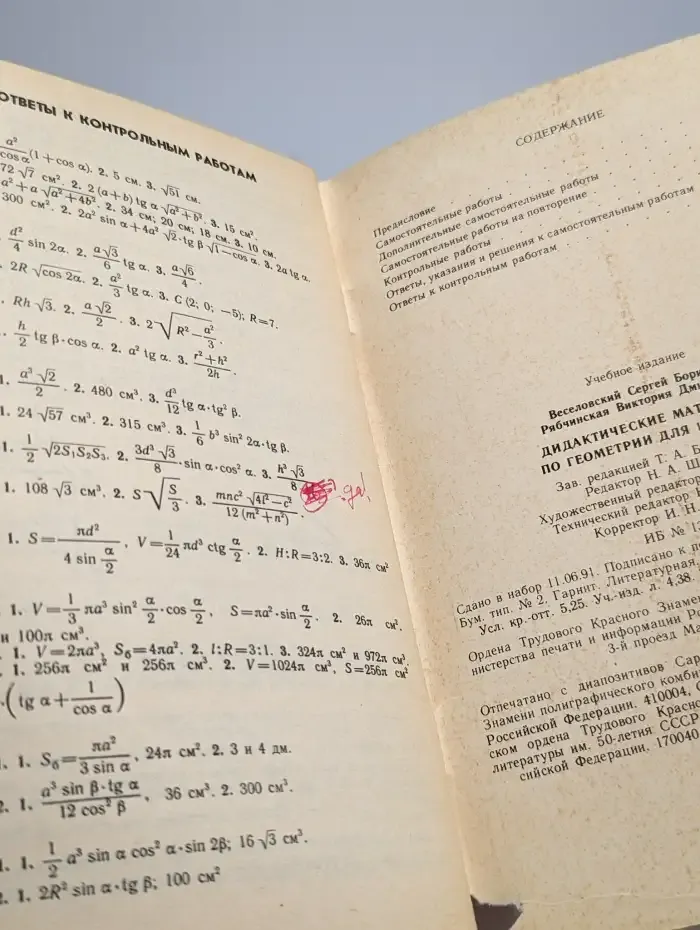 ОТВЕТЫ К КОНТРОЛЬНЫМ РАБОТАМ
a²/cos α (1+cos α). 2. 5 см. 3. √51 см.
72 √7 см². 2. 2 (a+b) tg α √a²+b². 3. 15 см².
a²+a √a²+4b². 2. 34 см; 20 см; 18 см. 3. 10 см.
300 см². 2. 2a² sin α+4a² √2·tg β √1−cos α. 3. 2a tg α.
d²/4 sin 2α. 2. a√3/6 tg α. 3. a√6/4.
2R √cos 2α. 2. a²/3 tg α. 3. C (2; 0; −5); R=7.
Rh √3. 2. a√2/2. 3. 2√R²−a²/3.
h/2 tg β·cos α. 2. a² tg α. 3. r²+h²/2h.
1. a³ √2/2. 2. 480 см³. 3. d³/12 tg α·tg² β.
1. 24 √57 см³. 2. 315 см³. 3. 1/6 b³ sin² 2α·tg β.
1. 1/2 √2S₁S₂S₃. 2. 3d³ √3/8 · sin α·cos² α. 3. h³ √3/8
1. 108 √3 см³. 2. S√S/3. 3. mnc² √4l²−c²/12 (m²+n²). да!
1. S=πd²/4 sin α/2, V=1/24 πd³ ctg α/2. 2. H:R=3:2. 3. 36π см²
1. V=1/3 πa³ sin² α/2·cos α/2, S=πa²·sin α/2. 2. 26π см².
и 100π см³.
1. V=2πa³, Sб=4πa². 2. l:R=3:1. 3. 324π см² и 972π см³.
1. 256π см² и 256π см³. 2. V=1024π см³, S=256π см²
·(tg α+1/cos α)
1. 1. Sб=πa²/3 sin α, 24π см². 2. 3 и 4 дм.
2. 1. a³ sin β·tg α/12 cos² β, 36 см³. 2. 300 см³.
1. 1. 1/2 a³ sin α cos² α·sin 2β; 16 √3 см³.
2. 1. 2R² sin α·tg β; 100 см²
СОДЕРЖАНИЕ
Предисловие
Самостоятельные работы
Дополнительные самостоятельные работы
Самостоятельные работы на повторение
Контрольные работы
Ответы, указания и решения к самостоятельным работам
Ответы к контрольным работам
Учебное издание
Веселовский Сергей Бори
Рябчинская Виктория Дми
ДИДАКТИЧЕСКИЕ МАТ
ПО ГЕОМЕТРИИ ДЛЯ
Зав. редакцией Т. А. Б
Редактор Н. А. Ш
Художественный редактор
Технический редактор
Корректор И. Н.
ИБ №
Сдано в набор 11.06.91. Подписано к п
Бум. тип. № 2. Гарнит. Литературная.
Усл. кр.-отт. 5,25. Уч.-изд. л. 4,38.
Ордена Трудового Красного Знамен
нистерства печати и информации Ро
3-й проезд Ма
Отпечатано с диапозитивов Сар
Знамени полиграфического комби
Российской Федерации. 410004,
ском ордена Трудового Красно
литературы им. 50-летия СССР
сийской Федерации. 170040